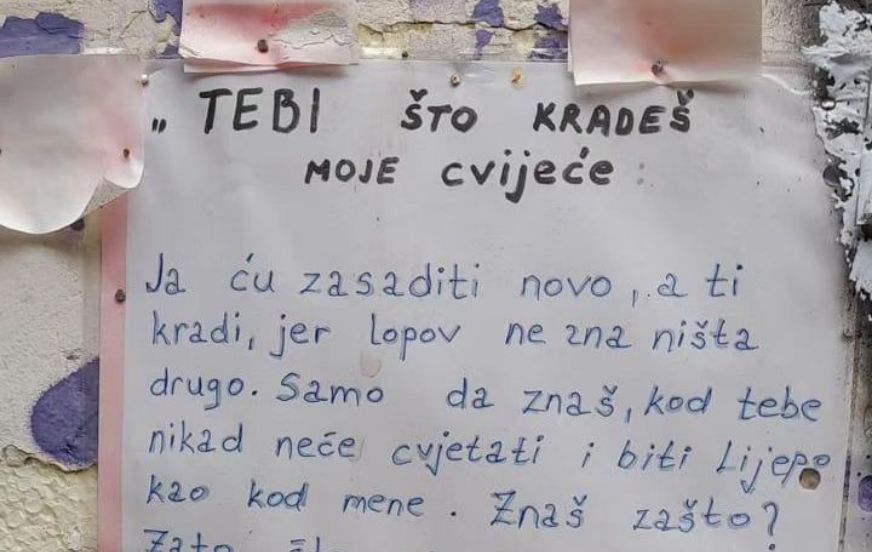 „ TEBI ŠTO KRADEŠ
MOJE cvijeće :
Ja ću zasaditi novo, a ti
kradi, jer lopov ne zna ništa
drugo. Samo da znaš, kod tebe
nikad neće cvjetati i biti Lijepo
kao kod mene. Znaš zašto?
Zato